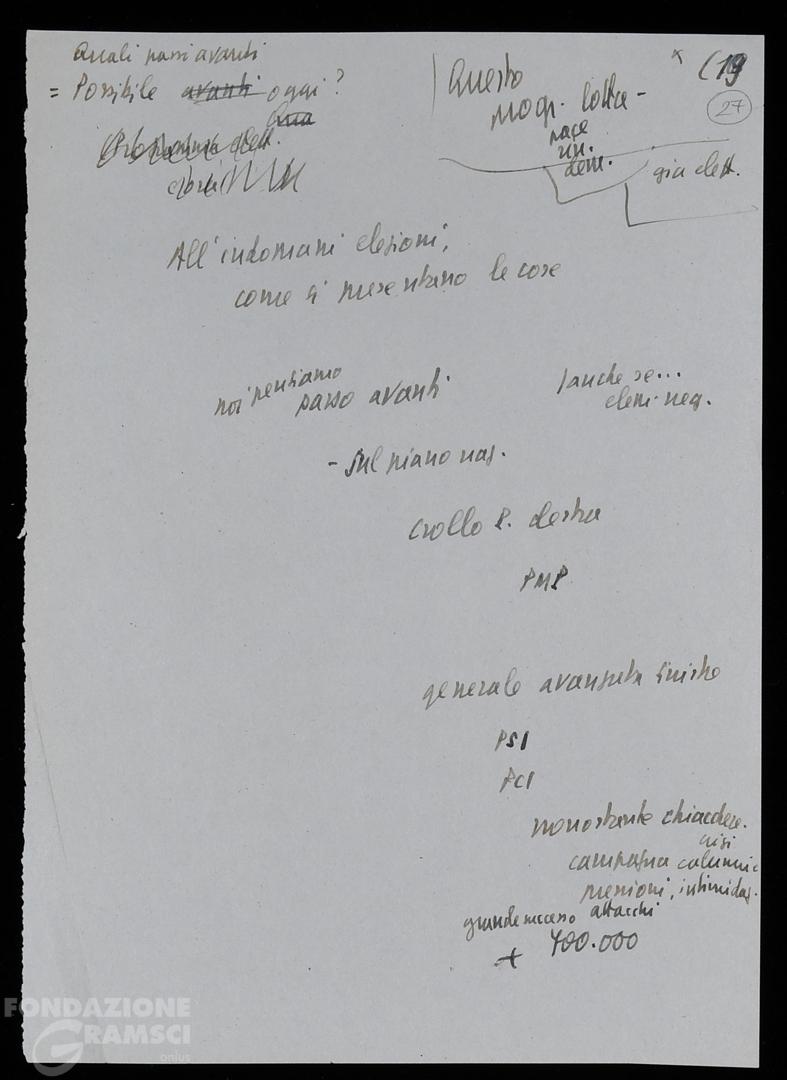 Quali passi avanti
= Possibile avanti oggi?
Questo
progr. lotta -
pace
un.
dem.
già elett.
(19
27
All'indomani elezioni,
come si presentano le cose
noi pensiamo
passo avanti
(anche se...
elem. neg.
- sul piano naz.
crollo P. destra
PMP
generale avanzata sinistre
PSI
PCI
nonostante chiacchere.
crisi
campagna calunnie
pressioni, intimidaz.
attacchi
grande successo
+ 400.000
FONDAZIONE
GRAMSCI
onlus